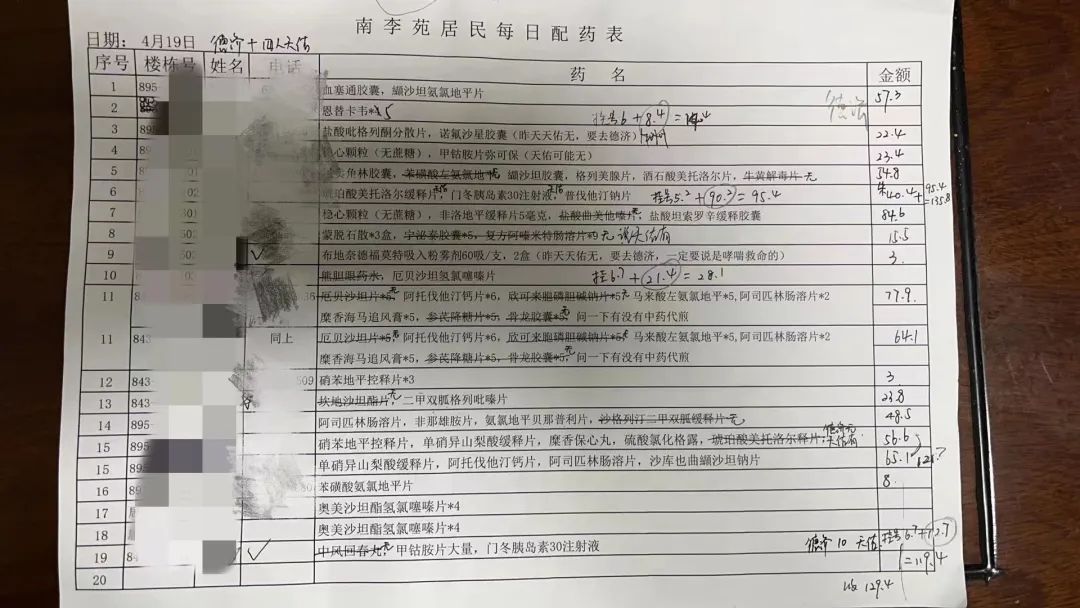 南李苑居民每日配药表
日期: 4月19日 德济+四人天佑
序号 楼栋号 姓名 电话 药 名 金额
1 895- 血塞通胶囊，缬沙坦氨氯地平片 57.3
2 恩替卡韦*15 挂号6+8.4=14.4 德济
3 895 盐酸吡格列酮分散片，诺氟沙星胶囊（昨天天佑无，要去德济） 22.4
4 稳心颗粒（无蔗糖），甲钴胺片弥可保（天佑可能无） 23.4
5 美角林胶囊，苯磺酸左氨氯地平 无 缬沙坦胶囊，格列美脲片，酒石酸美托洛尔片，牛黄解毒片 无 54.8
6 琥珀酸美托洛尔缓释片，门冬胰岛素30注射液，普伐他汀钠片 挂号5.2+90.2=95.4 40.4+95.4=135.8
7 稳心颗粒（无蔗糖），非洛地平缓释片5毫克，盐酸曲美他嗪片，盐酸坦索罗辛缓释胶囊 84.6
8 蒙脱石散*3盒，宁泌泰胶囊*5，复方阿嗪米特肠溶片*9 无 15.5
9 ✓ 布地奈德福莫特吸入粉雾剂60吸/支，2盒（昨天天佑无，要去德济，一定要说是哮喘救命的） 3
10 熊胆眼药水，厄贝沙坦氢氯噻嗪片 挂6.7+21.4=28.1
11 厄贝沙坦片*5 无 阿托伐他汀钙片*6，欣可来胞磷胆碱钠片*5 无 马来酸左氨氯地平*5,阿司匹林肠溶片*2 77.9
糜香海马追风膏*5，参芪降糖片*5，骨龙胶囊*5 无 问一下有没有中药代煎
11 843 同上 厄贝沙坦片*5 无 阿托伐他汀钙片*6，欣可来胞磷胆碱钠片*5 马来酸左氨氯地平*5，阿司匹林肠溶片*2 64.1
糜香海马追风膏*5，参芪降糖片*5，骨龙胶囊*5 无 问一下有没有中药代煎
12 843- 509 硝苯地平控释片*3 3
13 843- 坎地沙坦酯片 无，二甲双胍格列吡嗪片 23.8
14 895- 阿司匹林肠溶片，非那雄胺片，氨氯地平贝那普利片，沙格列汀二甲双胍缓释片 无 48.5
15 895- 硝苯地平控释片，单硝异山梨酸缓释片，糜香保心丸，硫酸氯化格露，琥珀酸美托洛尔释片， 德济无 天佑有 56.6
15 895 单硝异山梨酸缓释片，阿托伐他汀钙片，阿司匹林肠溶片，沙库也曲缬沙坦钠片 65.1
16 895 80 苯磺酸氨氯地平片 8
17 奥美沙坦酯氢氯噻嗪片*4
18 奥美沙坦酯氢氯噻嗪片*4
19 84 ✓ 中风回春丸 无，甲钴胺片大量，门冬胰岛素30注射液 德济10 天佑 挂号6.7+12.7
=119.4
20
收129.4